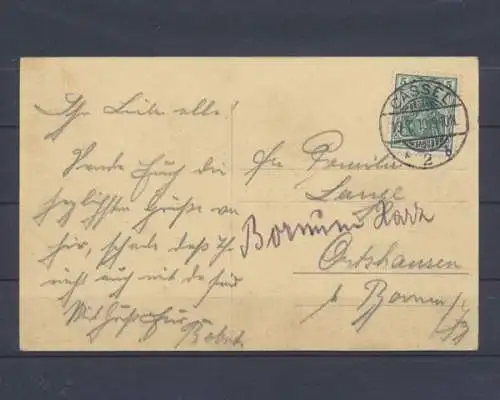 Ihr Liebe alle!
Sende Euch die
herzlichsten Grüße von
hier, schade daß Ihr
nicht auch mit da seid
Mit
CASSEL
2
5
5
Familie
Lange
Bornum Harz
Ortshausen
b Bornum